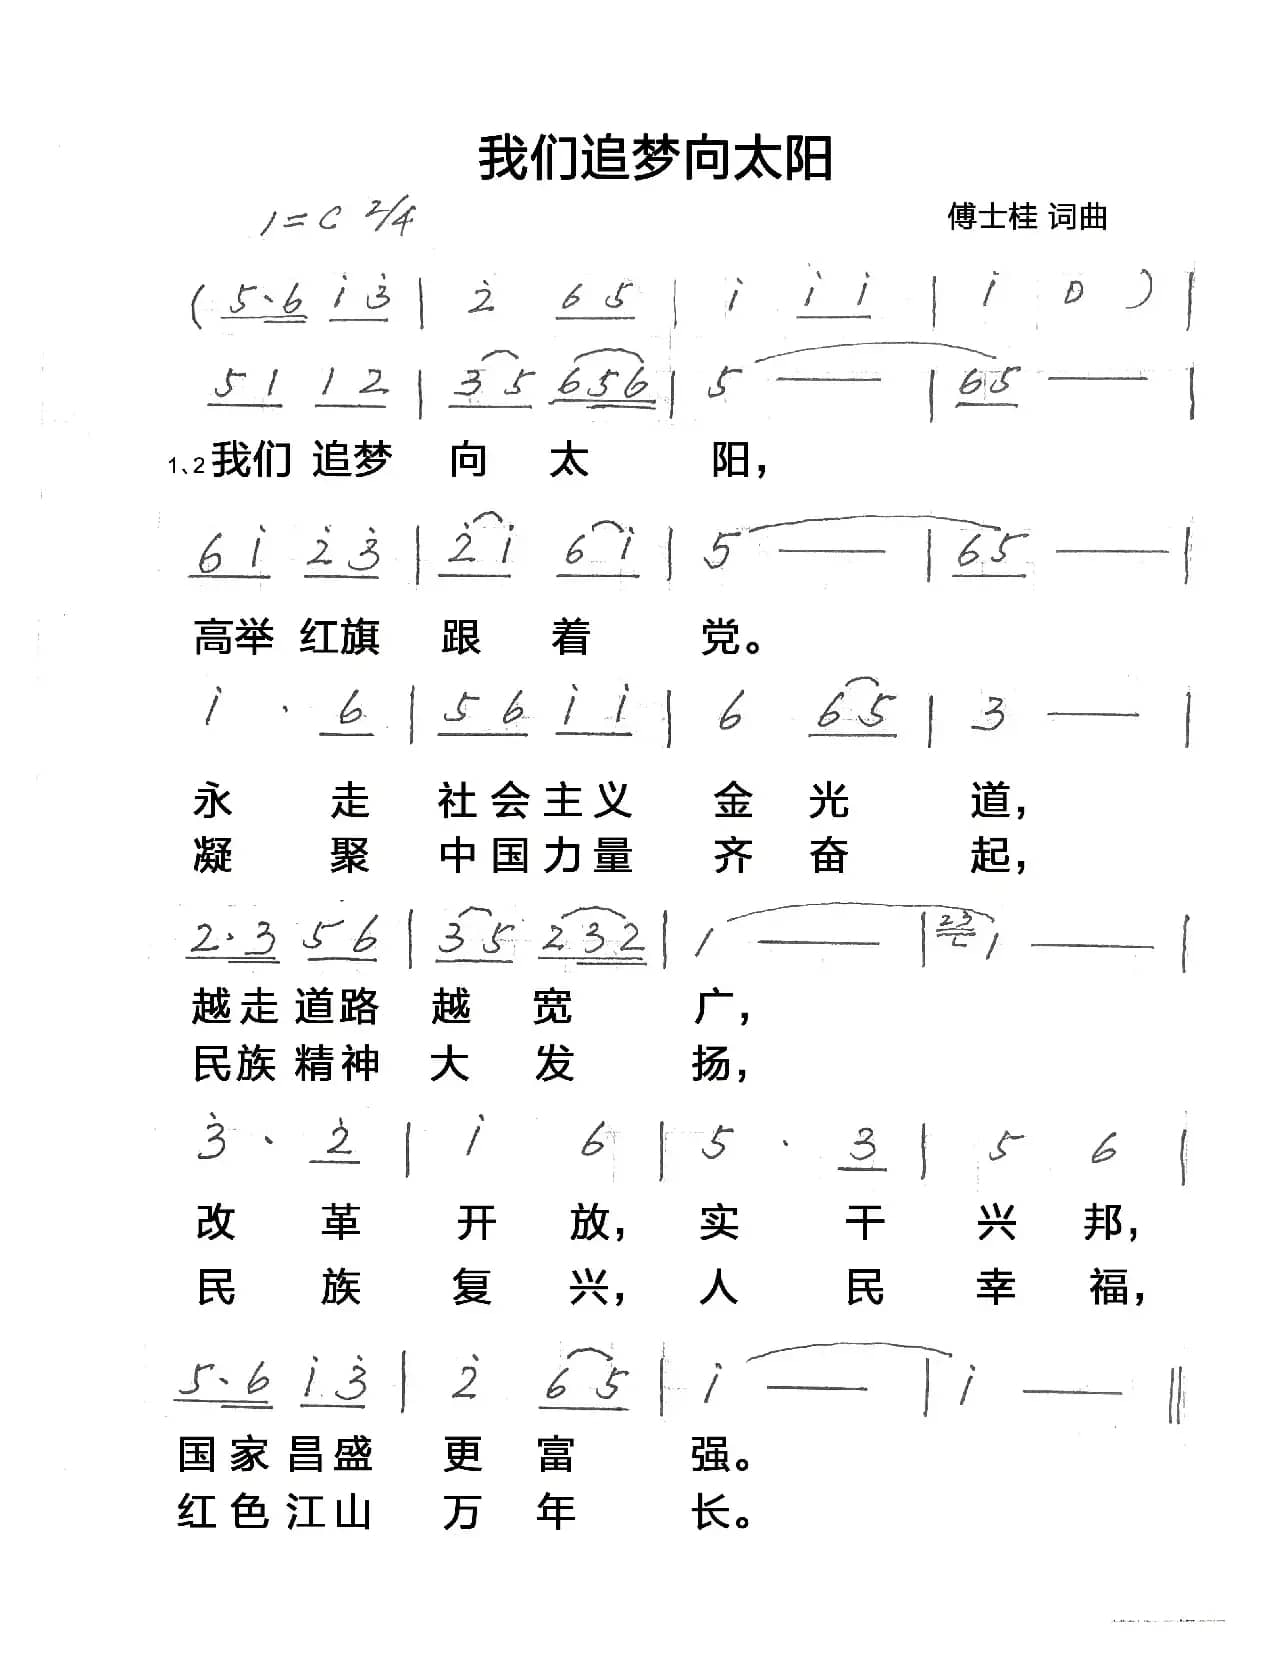 我们追梦向太阳
1=C 2/4
傅士桂 词曲
( 5·6 i 3 | 2 6 5 | i i i | i 0 ) |
5 1 1 2 | 3 5 6 5 6 | 5 — | 6 5 — |
1、2 我们 追梦 向 太 阳，
6 i 2 3 | 2 i 6 i | 5 — | 6 5 — |
高举 红旗 跟 着 党。
i · 6 | 5 6 i i | 6 6 5 | 3 — |
永 走 社会主义 金 光 道，
凝 聚 中国力量 齐 奋 起，
2·3 5 6 | 3 5 2 3 2 | 1 — | 23 1 — |
越走 道路 越 宽 广，
民族 精神 大 发 扬，
3 · 2 | i 6 | 5 · 3 | 5 6 |
改 革 开 放，实 干 兴 邦，
民 族 复 兴，人 民 幸 福，
5·6 i 3 | 2 6 5 | i — | i — ‖
国家昌盛 更 富 强。
红色江山 万 年 长。